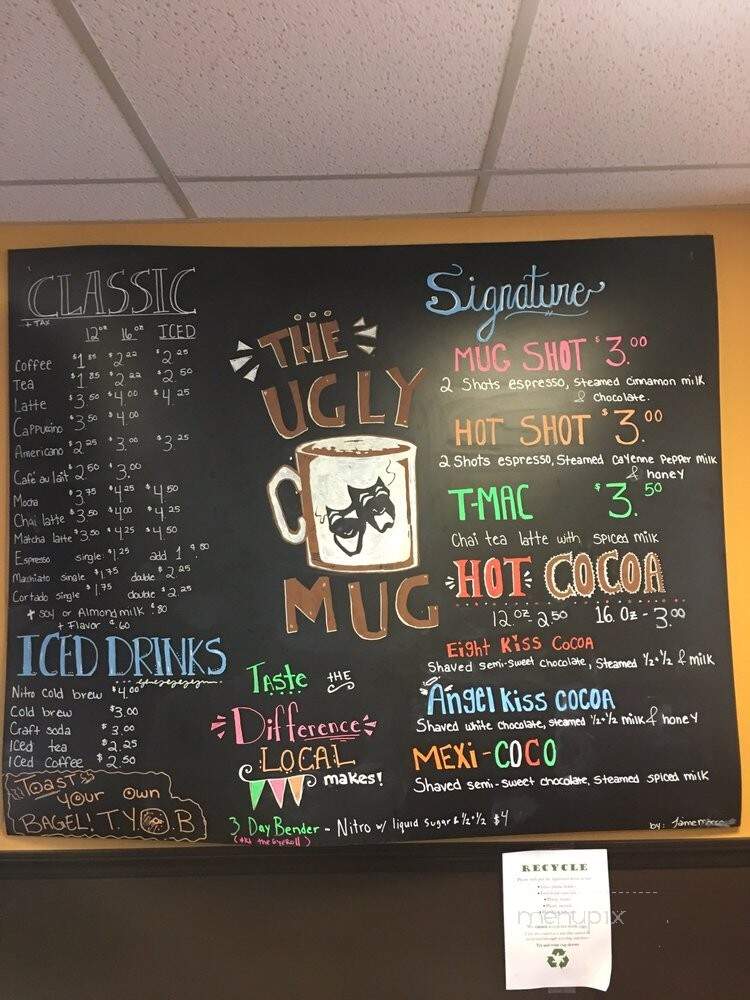 CLASSIC
+ TAX
12oz 16oz ICED
Coffee $1.85 $2.22 $2.25
Tea $1.85 $2.22 $2.50
Latte $3.50 $4.00 $4.25
Cappucino $3.50 $4.00
Americano $2.25 $3.00 $3.25
Café au lait $2.50 $3.00
Mocha $3.75 $4.25 $4.50
Chai latte $3.50 $4.00 $4.25
Matcha latte $3.50 $4.25 $4.50
Espresso single $1.25 add 1 $.80
Macchiato single $1.75 double $2.25
Cortado single $1.75 double $2.25
+ soy or Almond milk $.80
+ Flavor $.60
ICED DRINKS
Nitro Cold brew $4.00
Cold brew $3.00
Craft soda $3.00
Iced tea $2.25
Iced Coffee $2.50
Toast
your own
BAGEL! T.Y.O.B
THE
UGLY
MUG
Taste THE
Difference
LOCAL
makes!
3 Day Bender - Nitro w/ liquid sugar & 1/2 + 1/2 $4
(aka the eyeroll)
Signature
MUG SHOT $3.00
2 Shots espresso, steamed cinnamon milk
& chocolate.
HOT SHOT $3.00
2 Shots espresso, Steamed cayenne Pepper milk
& honey
T-MAC $3.50
Chai tea latte with spiced milk
HOT COCOA
12.oz 2.50 16.oz - 3.00
Eight Kiss Cocoa
Shaved semi-sweet chocolate, Steamed 1/2 + 1/2 & milk
Angel Kiss COCOA
Shaved white chocolate, steamed 1/2 + 1/2 milk & honey
MEXI-COCO
Shaved semi-sweet chocolate, Steamed spiced milk
by: Jame
RECYCLE
menupix